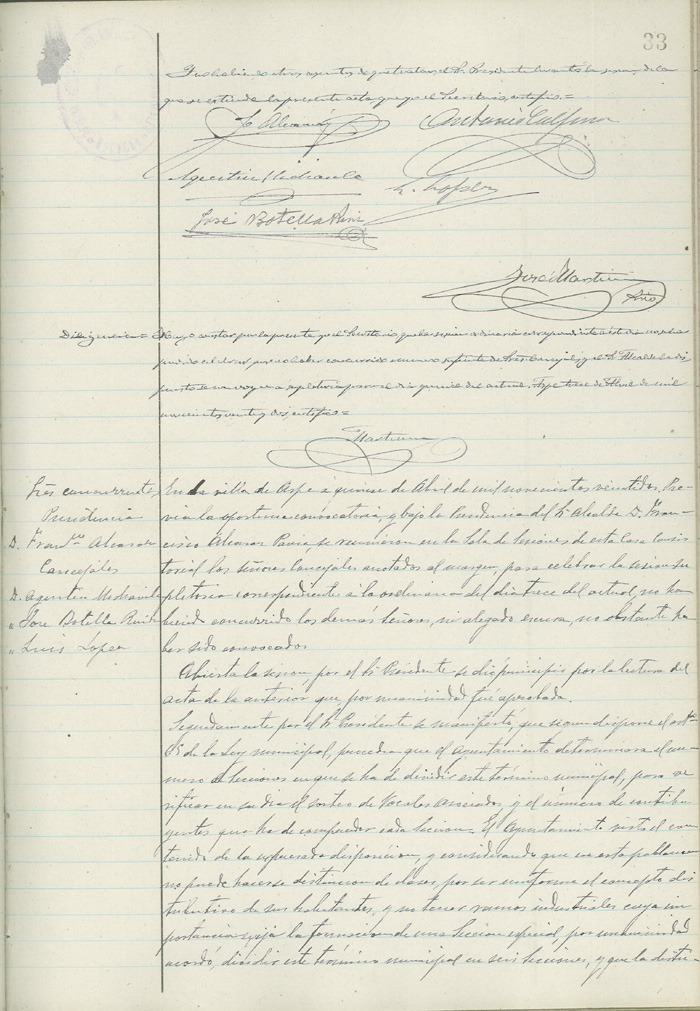 33
No habiendo otros asuntos de que tratar, el Sr. Presidente levantó la sesion, de la
que se extiende la presente acta que yo el Secretario certifico.=
F. Alcaraz
Antonio Cañizares
Agustin Mediavilla
L. Lopez
José Botella
José Martinez
Srio
Diligencia = Hago constar por la presente yo el Secretario, que la sesion ordinaria correspondiente a este dia no se ha
podido celebrar, por no haber concurrido numero suficiente de Sres. Concejales, y el Sr. Alcalde ha dis
puesto se convoque a supletoria para el dia quince del actual. Aspe trece de Abril de mil
novecientos veinte y dos, certifico =
Martinez
Sres concurrentes
Presidencia
D. Franco Alcaraz
Concejales
D. Agustin Mediavilla
" Jose Botella Ruiz
" Luis Lopez
En la villa de Aspe a quince de Abril de mil novecientos veintidos. Pre-
via la oportuna convocatoria y bajo la Presidencia del Sr. Alcalde D. Fran-
cisco Alcaraz Pavia, se reunieron en la Sala de Sesiones de esta Casa Consis
torial los señores Concejales anotados al margen, para celebrar la sesion su
pletoria correspondiente á la ordinaria del dia trece del actual, no ha
biendo concurrido los demás Señores, ni alegado excusa, no obstante ha
ber sido convocados.
Abierta la sesion, por el Sr. Presidente se dió principio por la lectura del
acta de la anterior que, por unanimidad fué aprobada.
Seguidamente por el Sr. Presidente se manifestó, que segun dispone el arto
65 de la Ley municipal, procedia que el ayuntamiento determinara el nu-
mero de secciones en que se ha de dividir este término municipal, para ve
rificar en su dia el sorteo de Vocales asociados, y el número de contribu
yentes que ha de comprender cada seccion. El Ayuntamiento visto el con
tenido de la expresada disposicion, y considerando que en esta poblacion
no puede hacerse distincion de clases, por ser uniforme el concepto dis
tributivo de sus habitantes, y no tener ramos industriales cuya im
portancia exija la formacion de una seccion especial, por unanimidad
acordó, dividir este término municipal en seis secciones, y que la distri-